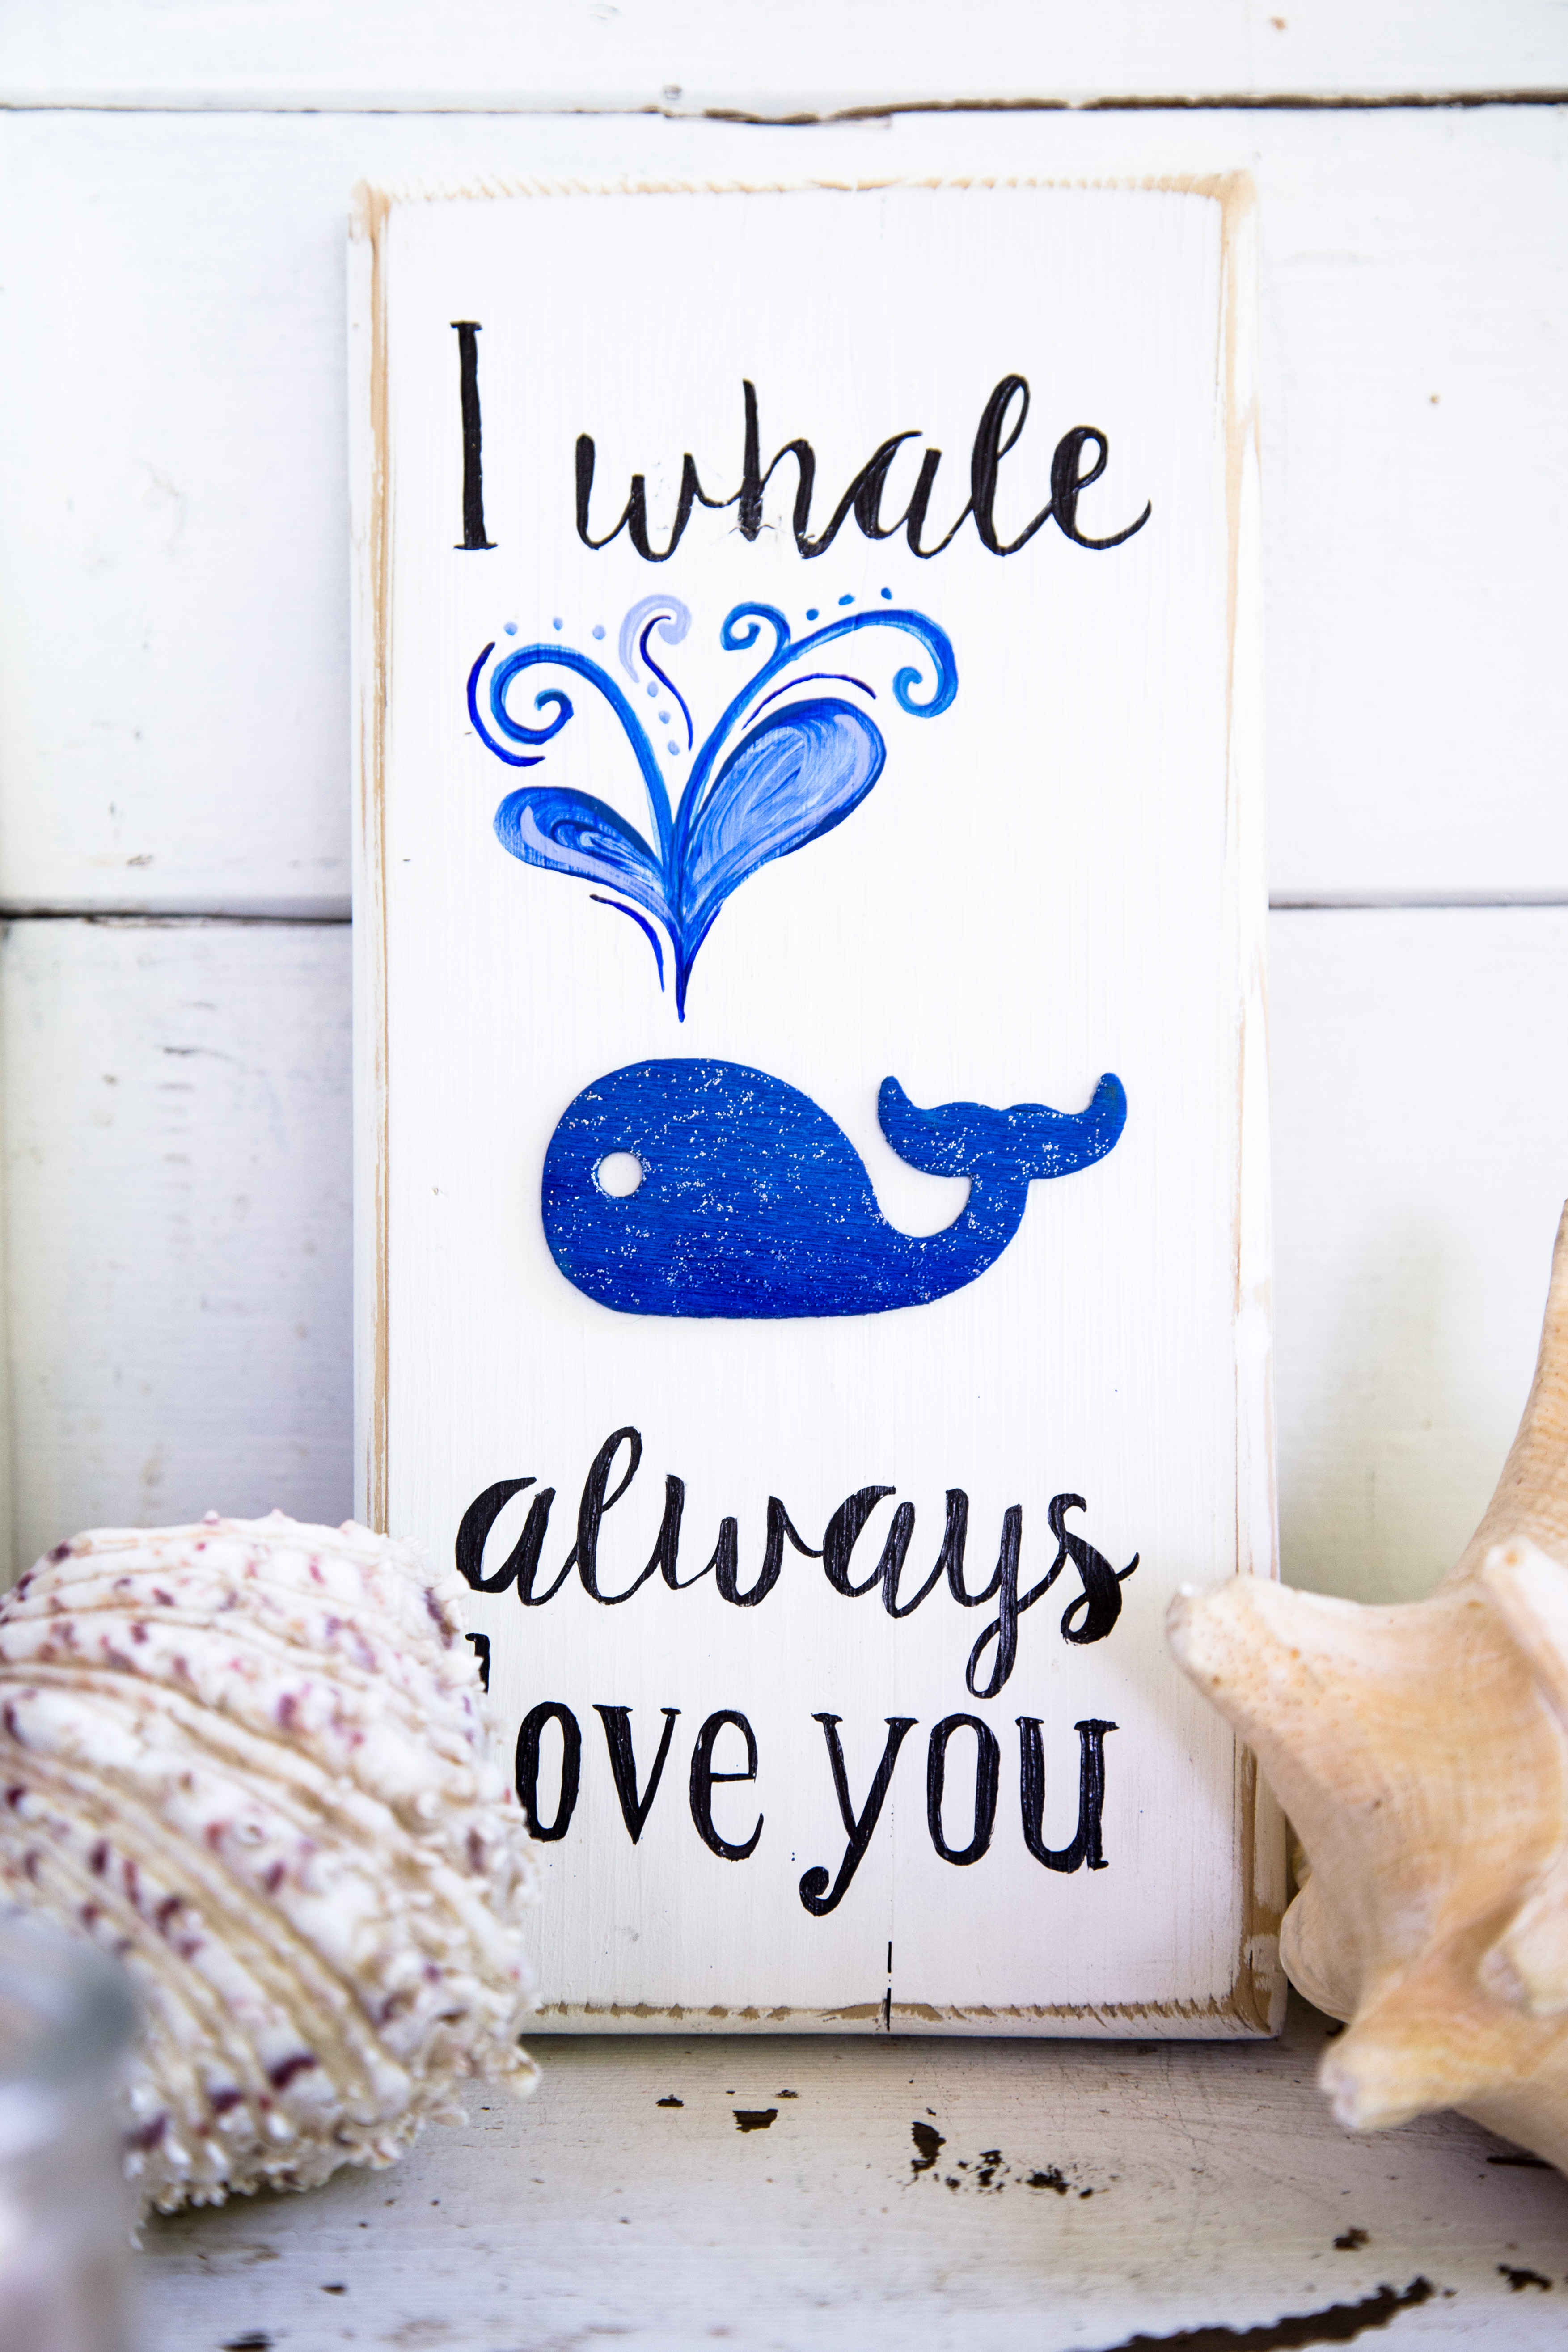 I whale
always
love you